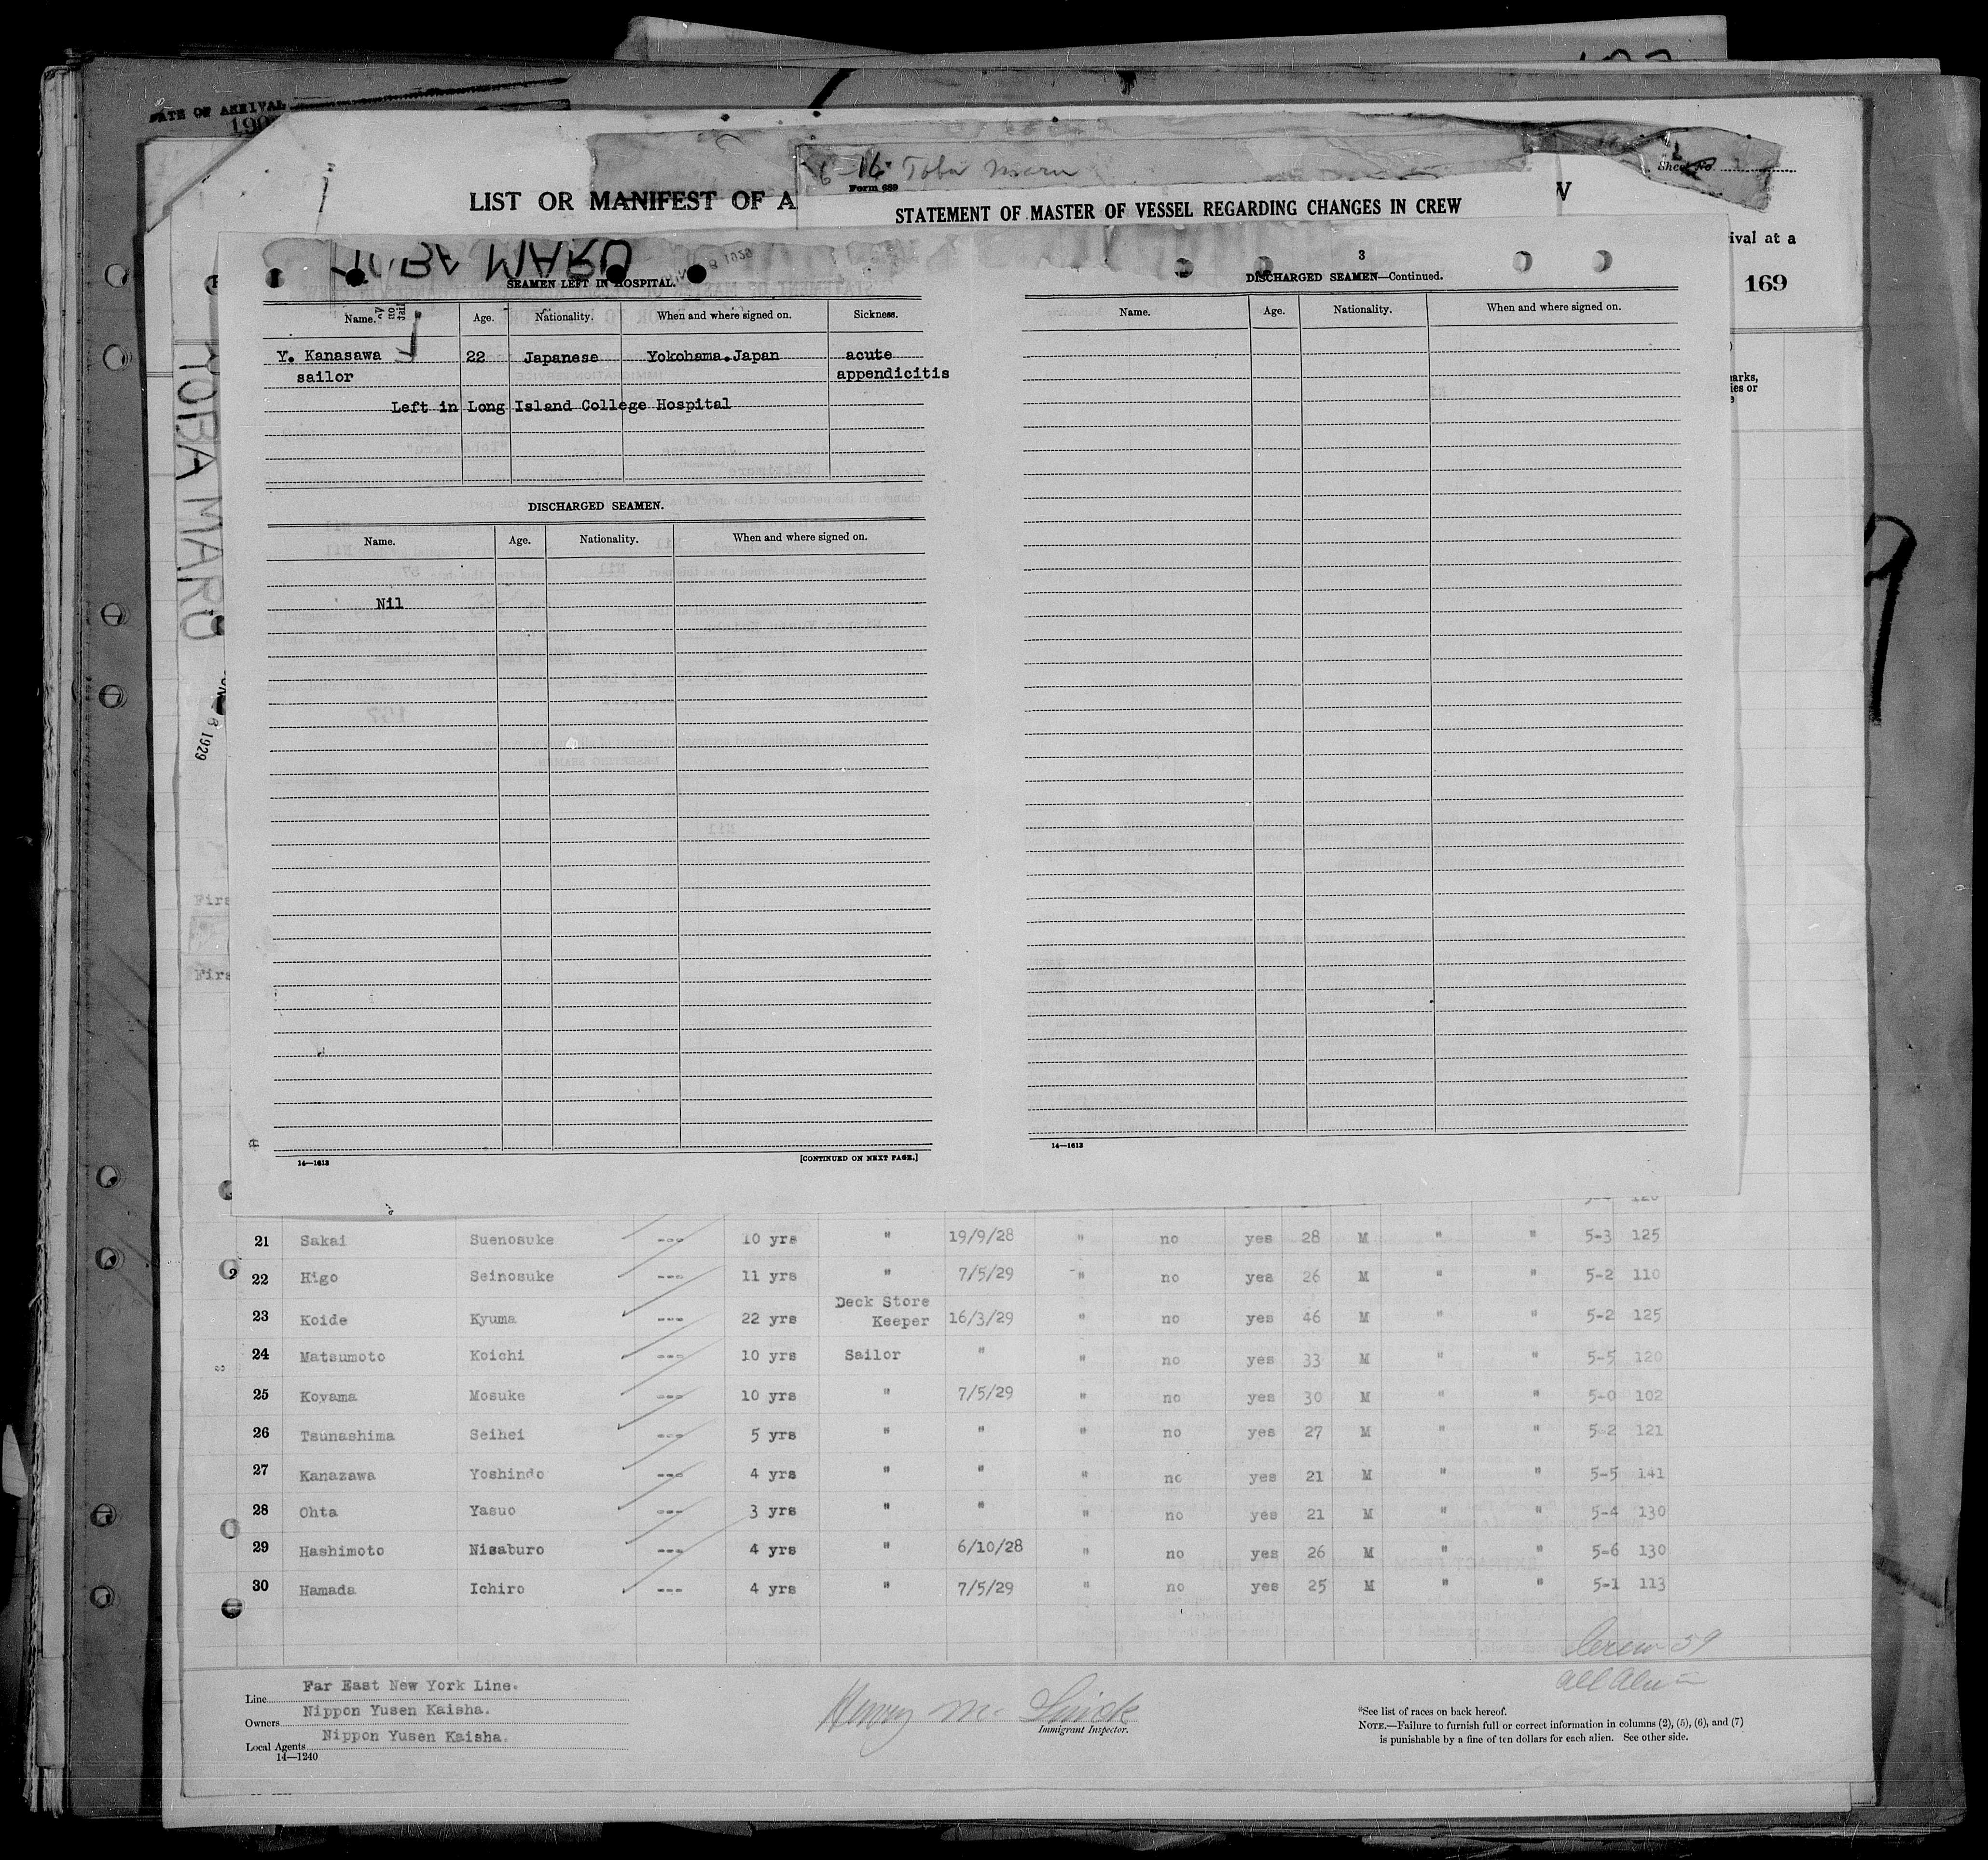 DATE OF ARRIVAL
190
6-16 Toba Maru
Form 689
Sheet No.
LIST OR MANIFEST OF A
STATEMENT OF MASTER OF VESSEL REGARDING CHANGES IN CREW
V
ival at a
169
arks,
ies or
TOBA MARU
8 1929
TOBA MARU
8 1929
SEAMEN LEFT IN HOSPITAL.
Name. Age. Nationality. When and where signed on. Sickness.
Y. Kanasawa 22 Japanese Yokohama.Japan acute
sailor appendicitis
Left in Long Island College Hospital
DISCHARGED SEAMEN.
Name. Age. Nationality. When and where signed on.
Nil
14—1613 [CONTINUED ON NEXT PAGE.]
3
DISCHARGED SEAMEN—Continued.
Name. Age. Nationality. When and where signed on.
14—1613
Firs
Firs
21 Sakai Suenosuke --- 10 yrs " 19/9/28 " no yes 28 M " " 5-3 125
22 Higo Seinosuke --- 11 yrs " 7/5/29 " no yes 26 M " " 5-2 110
23 Koide Kyuma --- 22 yrs Deck Store Keeper 16/3/29 " no yes 46 M " " 5-2 125
24 Matsumoto Koichi --- 10 yrs Sailor " " no yes 33 M " " 5-5 120
25 Koyama Mosuke --- 10 yrs " 7/5/29 " no yes 30 M " " 5-0 102
26 Tsunashima Seihei --- 5 yrs " " " no yes 27 M " " 5-2 121
27 Kanazawa Yoshindo --- 4 yrs " " " no yes 21 M " " 5-5 141
28 Ohta Yasuo --- 3 yrs " " " no yes 21 M " " 5-4 130
29 Hashimoto Nisaburo --- 4 yrs " 6/10/28 " no yes 26 M " " 5-6 130
30 Hamada Ichiro --- 4 yrs " 7/5/29 " no yes 25 M " " 5-1 113
Crew 59
All Alien
Line Far East New York Line.
Owners Nippon Yusen Kaisha.
Local Agents Nippon Yusen Kaisha.
14—1240
Henry M.
Immigrant Inspector.
*See list of races on back hereof.
NOTE.—Failure to furnish full or correct information in columns (2), (5), (6), and (7)
is punishable by a fine of ten dollars for each alien. See other side.